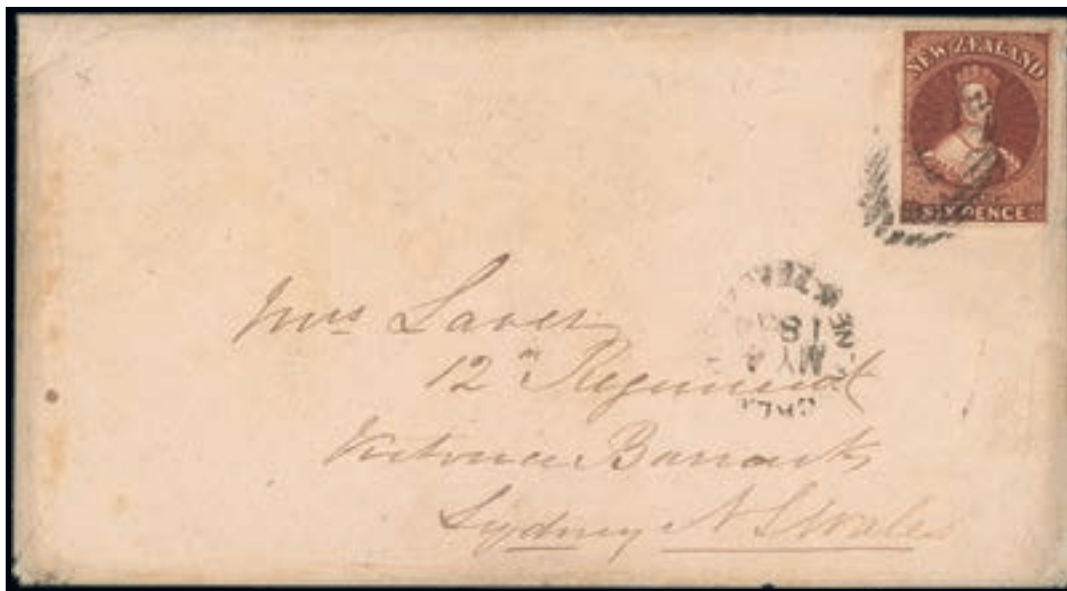 NEW ZEALAND
SIX PENCE
MY 4
18
Mrs Laver
12th Regiment
Victoria Barracks
Sydney N S Wales